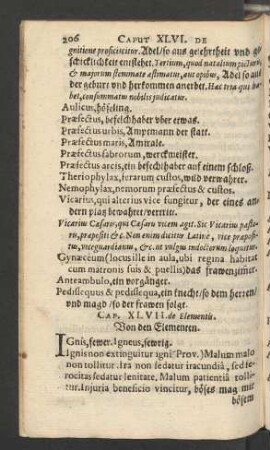 206 CAPUT XLVI. DE
gnitione proficiscitur. Adel/so aus gelehrtheit vnd ge
schicklichkeit entstehet. Tertium, quod natalium
& majorum stemmate æstimatur, aut opibus, Adel so auß
der geburt vnd herkommen anerbet. Hæc tria qui ha-
bet, consummatus nobilis judicatur.
Aulicus, höfeling.
Præfectus, befelchhaber vber etwas.
Præfectus urbis, Amptmann der statt.
Præfectus maris, Amirale.
Præfectus fabrorum, werckmeister.
Præfectus arcis, ein befelchhaber auf einem schloß.
Theriophylax, ferarum custos, wild verwahrer.
Nemophylax, nemorum præfectus & custos.
Vicarius, qui alterius vice fungitur, der eines an-
dern platz bewahret/vertritt.
Vicarius Cæsaris, qui Cæsaris vicem agit. Sic Vicarius pasto-
ris, præpositi &c. Non enim dicitur Latinè, vice præposi-
tus, viceguardianus, &c. ut vulgus indoctorum loquitur.
Gynæceum (locus ille in aula, ubi regina habitat
cum matronis suis & puellis) das frawenzimer.
Anteambulo, ein vorgänger.
Pedissequus & pedissequa, ein knecht/so dem herren/
vnd magd/so der frawen folget.
CAP. XLVII. de Elementis.
Von den Elementen.
IGnis, fewer. Igneus, fewrig.
Ignis non extinguitur igni (Prov.) Malum malo
non tollitur. Ira non sedatur iracundiâ, sed fe-
rocitas sedatur lenitate. Malum patientiâ tolli-
tur. Injuria beneficio vincitur, böses mag mit
bösem